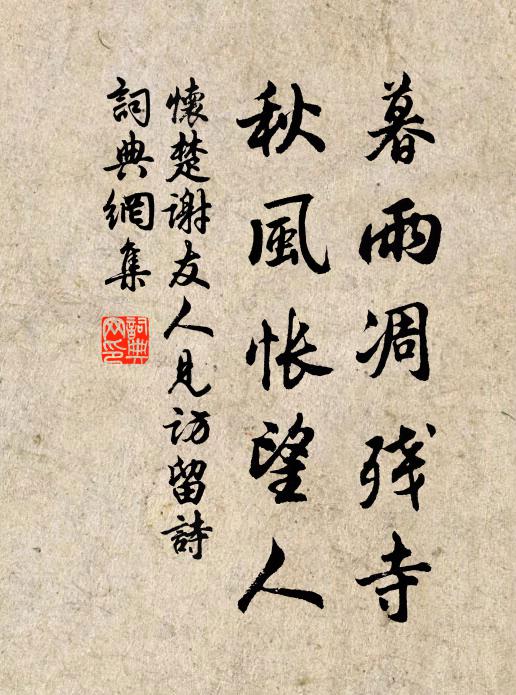 暮雨凋残寺
秋風怅望人
懷楚謝友人見访留詩
詞典網集
詞典
网印